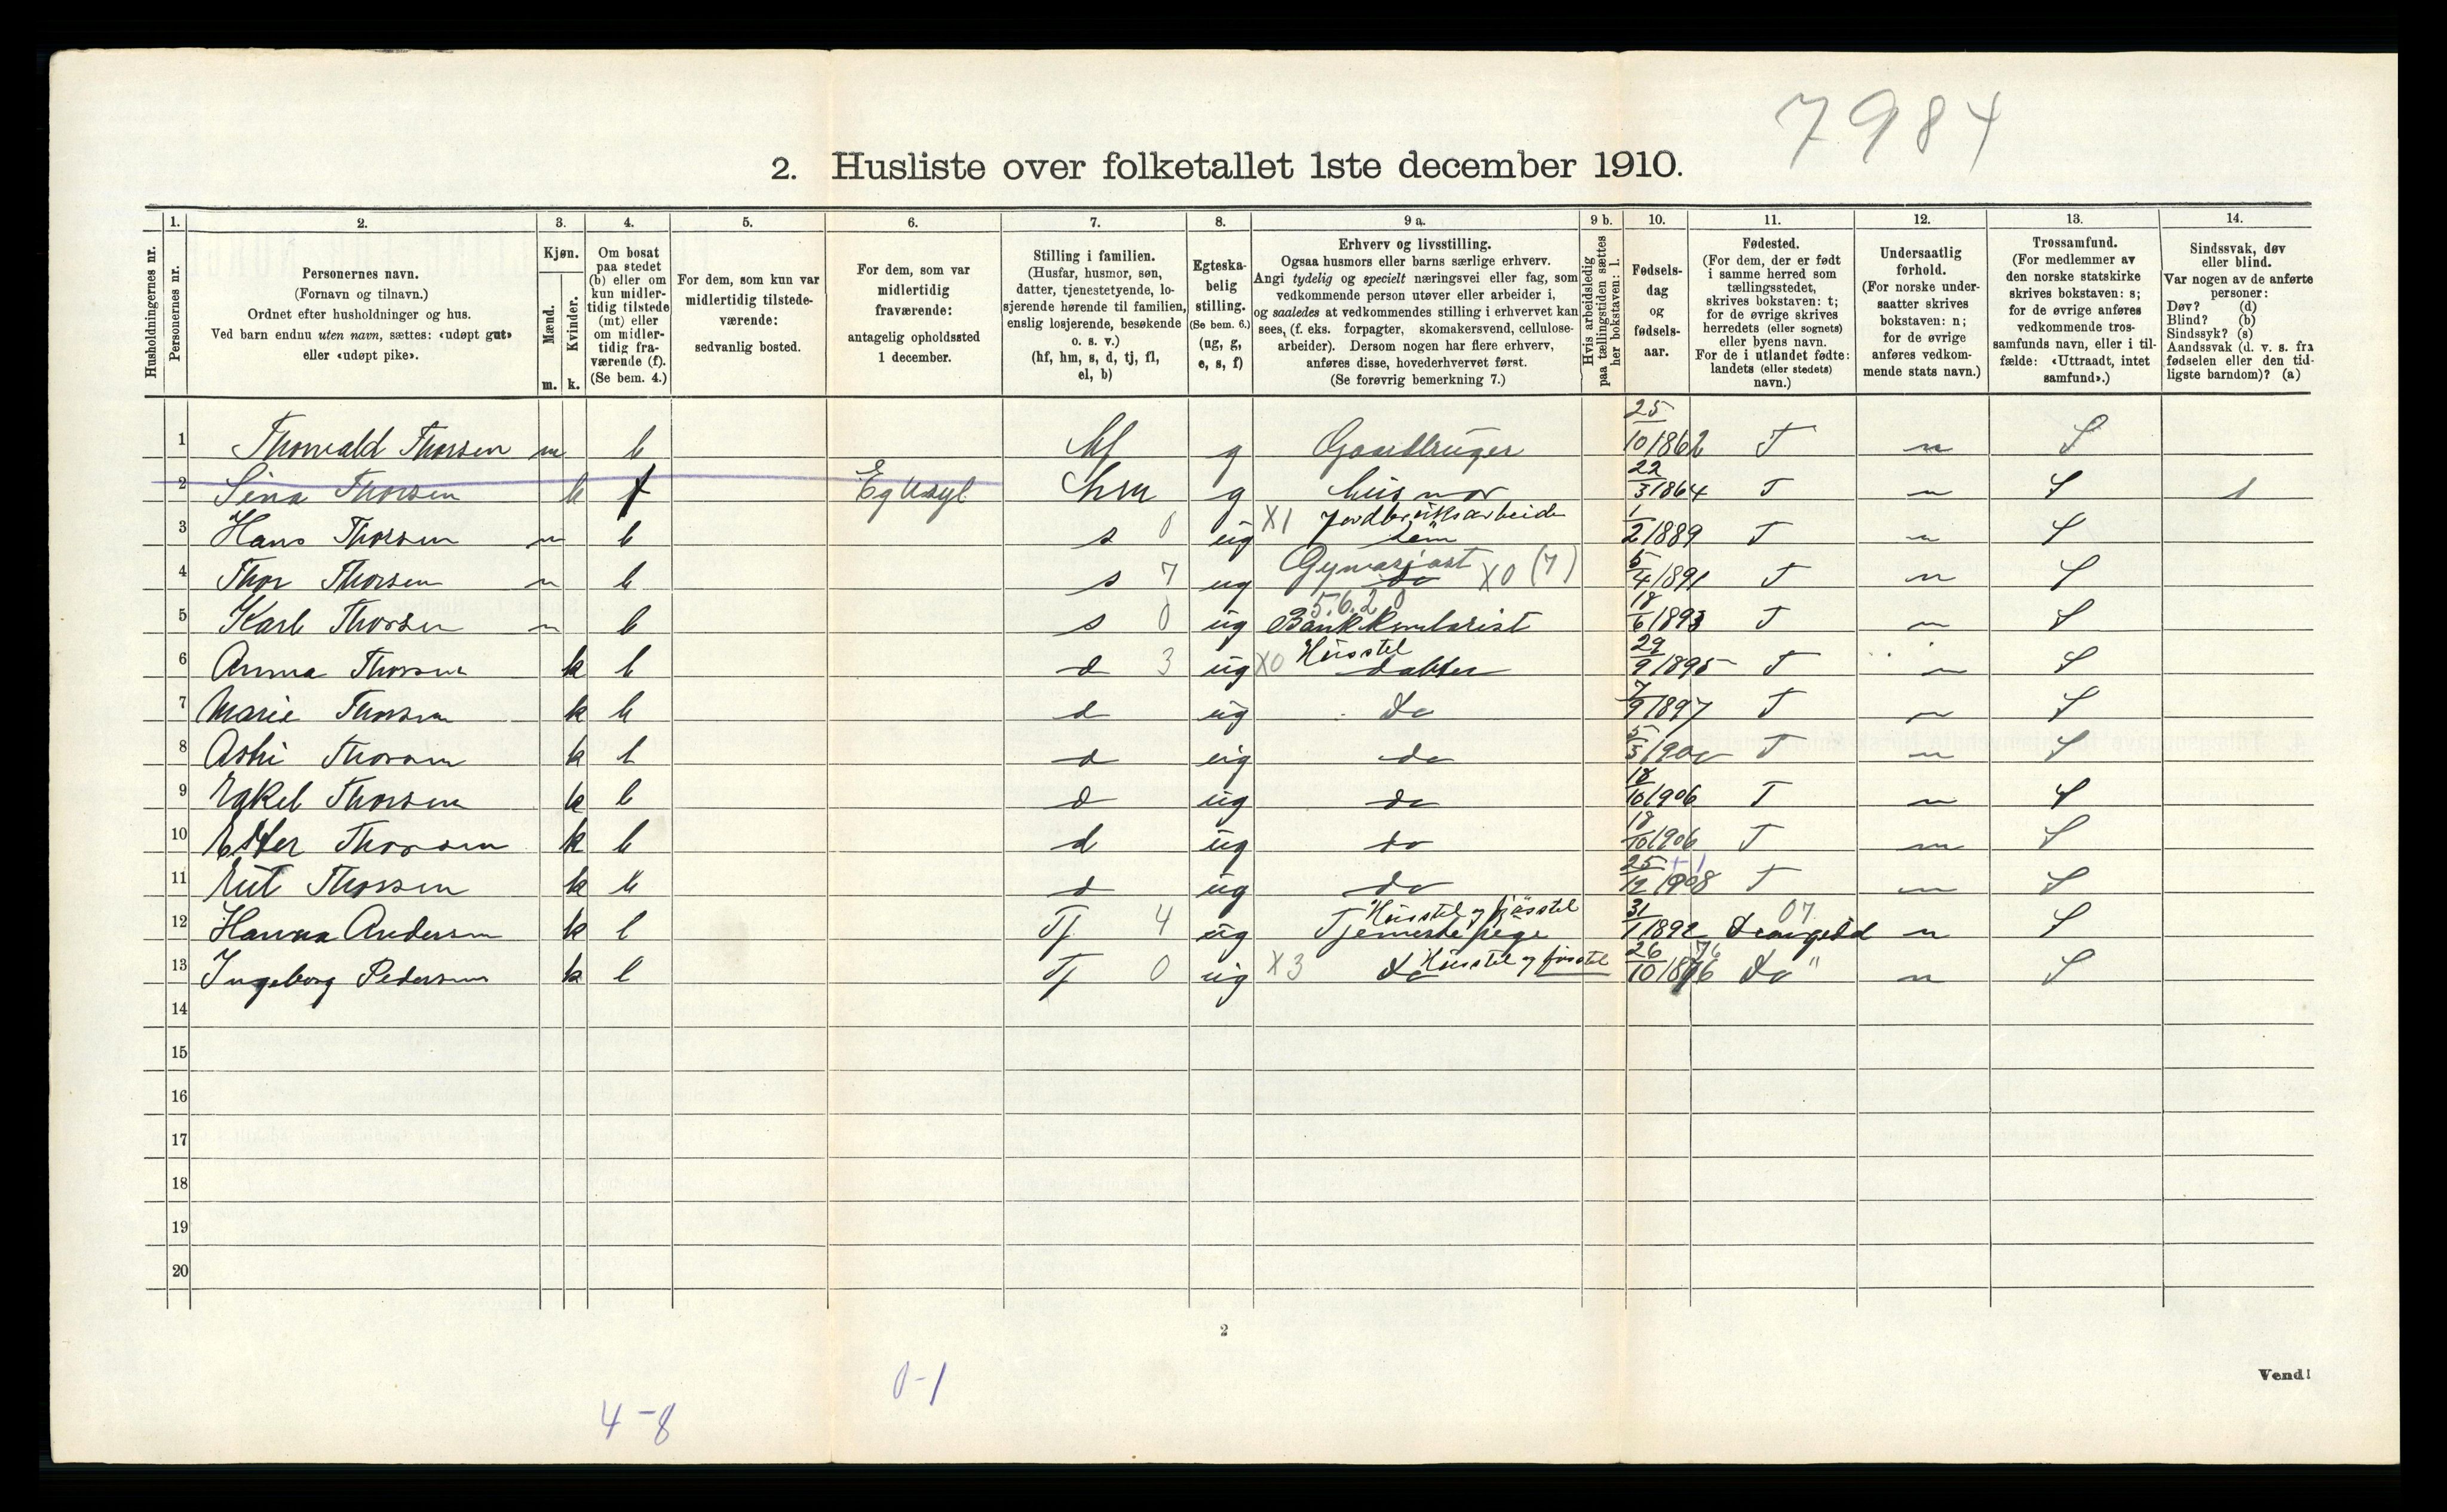 7984
2. Husliste over folketallet 1ste december 1910.
Husholdningernes nr.
1. Personernes nr.
2. Personernes navn.
(Fornavn og tilnavn.)
Ordnet efter husholdninger og hus.
Ved barn endnu uten navn, sættes: «udøpt gut»
eller «udøpt pike».
3. Kjøn.
Mænd. m.
Kvinder. k.
4. Om bosat
paa stedet
(b) eller om
kun midler-
tidig tilstede
(mt) eller
om midler-
tidig fra-
værende (f).
(Se bem. 4.)
5. For dem, som kun var
midlertidig tilstede-
værende:
sedvanlig bosted.
6. For dem, som var
midlertidig
fraværende:
antagelig opholdssted
1 december.
7. Stilling i familien.
(Husfar, husmor, søn,
datter, tjenestetyende, lo-
sjerende hørende til familien,
enslig losjerende, besøkende
o. s. v.)
(hf, hm, s, d, tj, fl,
el, b)
8. Egteska-
belig
stilling.
(Se bem. 6.)
(ug, g,
e, s, f)
9 a. Erhverv og livsstilling.
Ogsaa husmors eller barns særlige erhverv.
Angi tydelig og specielt næringsvei eller fag, som
vedkommende person utøver eller arbeider i,
og saaledes at vedkommendes stilling i erhvervet kan
sees, (f. eks. forpagter, skomakersvend, cellulose-
arbeider). Dersom nogen har flere erhverv,
anføres disse, hovederhvervet først.
(Se forøvrig bemerkning 7.)
9 b. Hvis arbeidsledig
paa tællingstiden sættes
her bokstaven: l.
10. Fødsels-
dag
og
fødsels-
aar.
11. Fødested.
(For dem, der er født
i samme herred som
tællingsstedet,
skrives bokstaven: t;
for de øvrige skrives
herredets (eller sognets)
eller byens navn.
For de i utlandet fødte:
landets (eller stedets)
navn.)
12. Undersaatlig
forhold.
(For norske under-
saatter skrives
bokstaven: n;
for de øvrige
anføres vedkom-
mende stats navn.)
13. Trossamfund.
(For medlemmer av
den norske statskirke
skrives bokstaven: s;
for de øvrige anføres
vedkommende tros-
samfunds navn, eller i til-
fælde: «Uttraadt, intet
samfund».)
14. Sindssvak, døv
eller blind.
Var nogen av de anførte
personer:
Døv? (d)
Blind? (b)
Sindssyk? (s)
Aandssvak (d. v. s. fra
fødselen eller den tid-
ligste barndom)? (a)
1 Thorvald Thorsen m b hf g Gaardbruger 25/10 1862 T n S
2 Sina Thorsen k f Eg Asyl hm g husmor 22/3 1864 T n S s
3 Hans Thorsen m b s 0 ug X1 Jordbruksarbeide søn 1/2 1889 T n S
4 Thor Thorsen m b s 7 ug Gymnasiast do X0 (7) 5/4 1891 T n S
5 Karl Thorsen m b s 0 ug 5.6.2 0 Bankkontorist 18/6 1893 T n S
6 Anna Thorsen k b d 3 ug X0 Husstel datter 29/9 1895 T n S
7 Marie Thorsen k b d ug do 7/9 1897 T n S
8 Thorsen k b d ug do 5/5 1900 T n S
9 Thorsen k b d ug do 18/10 1906 T n S
10 Ester Thorsen k b d ug do 18/10 1906 T n S
11 Rut Thorsen k b d ug do 25/12 1908 T n S
12 Hanna Andersen k b Tj 4 ug Husstel og fjøsstel Tjenestepige 31/1 1892 07 Drangedal n S
13 Ingeborg Pedersen k b Tj 0 ug X3 do Husstel og fjøsstel 26/10 1876 76 do " n S
14
15
16
17
18
19
20
2
Vend!
0-1
4-8